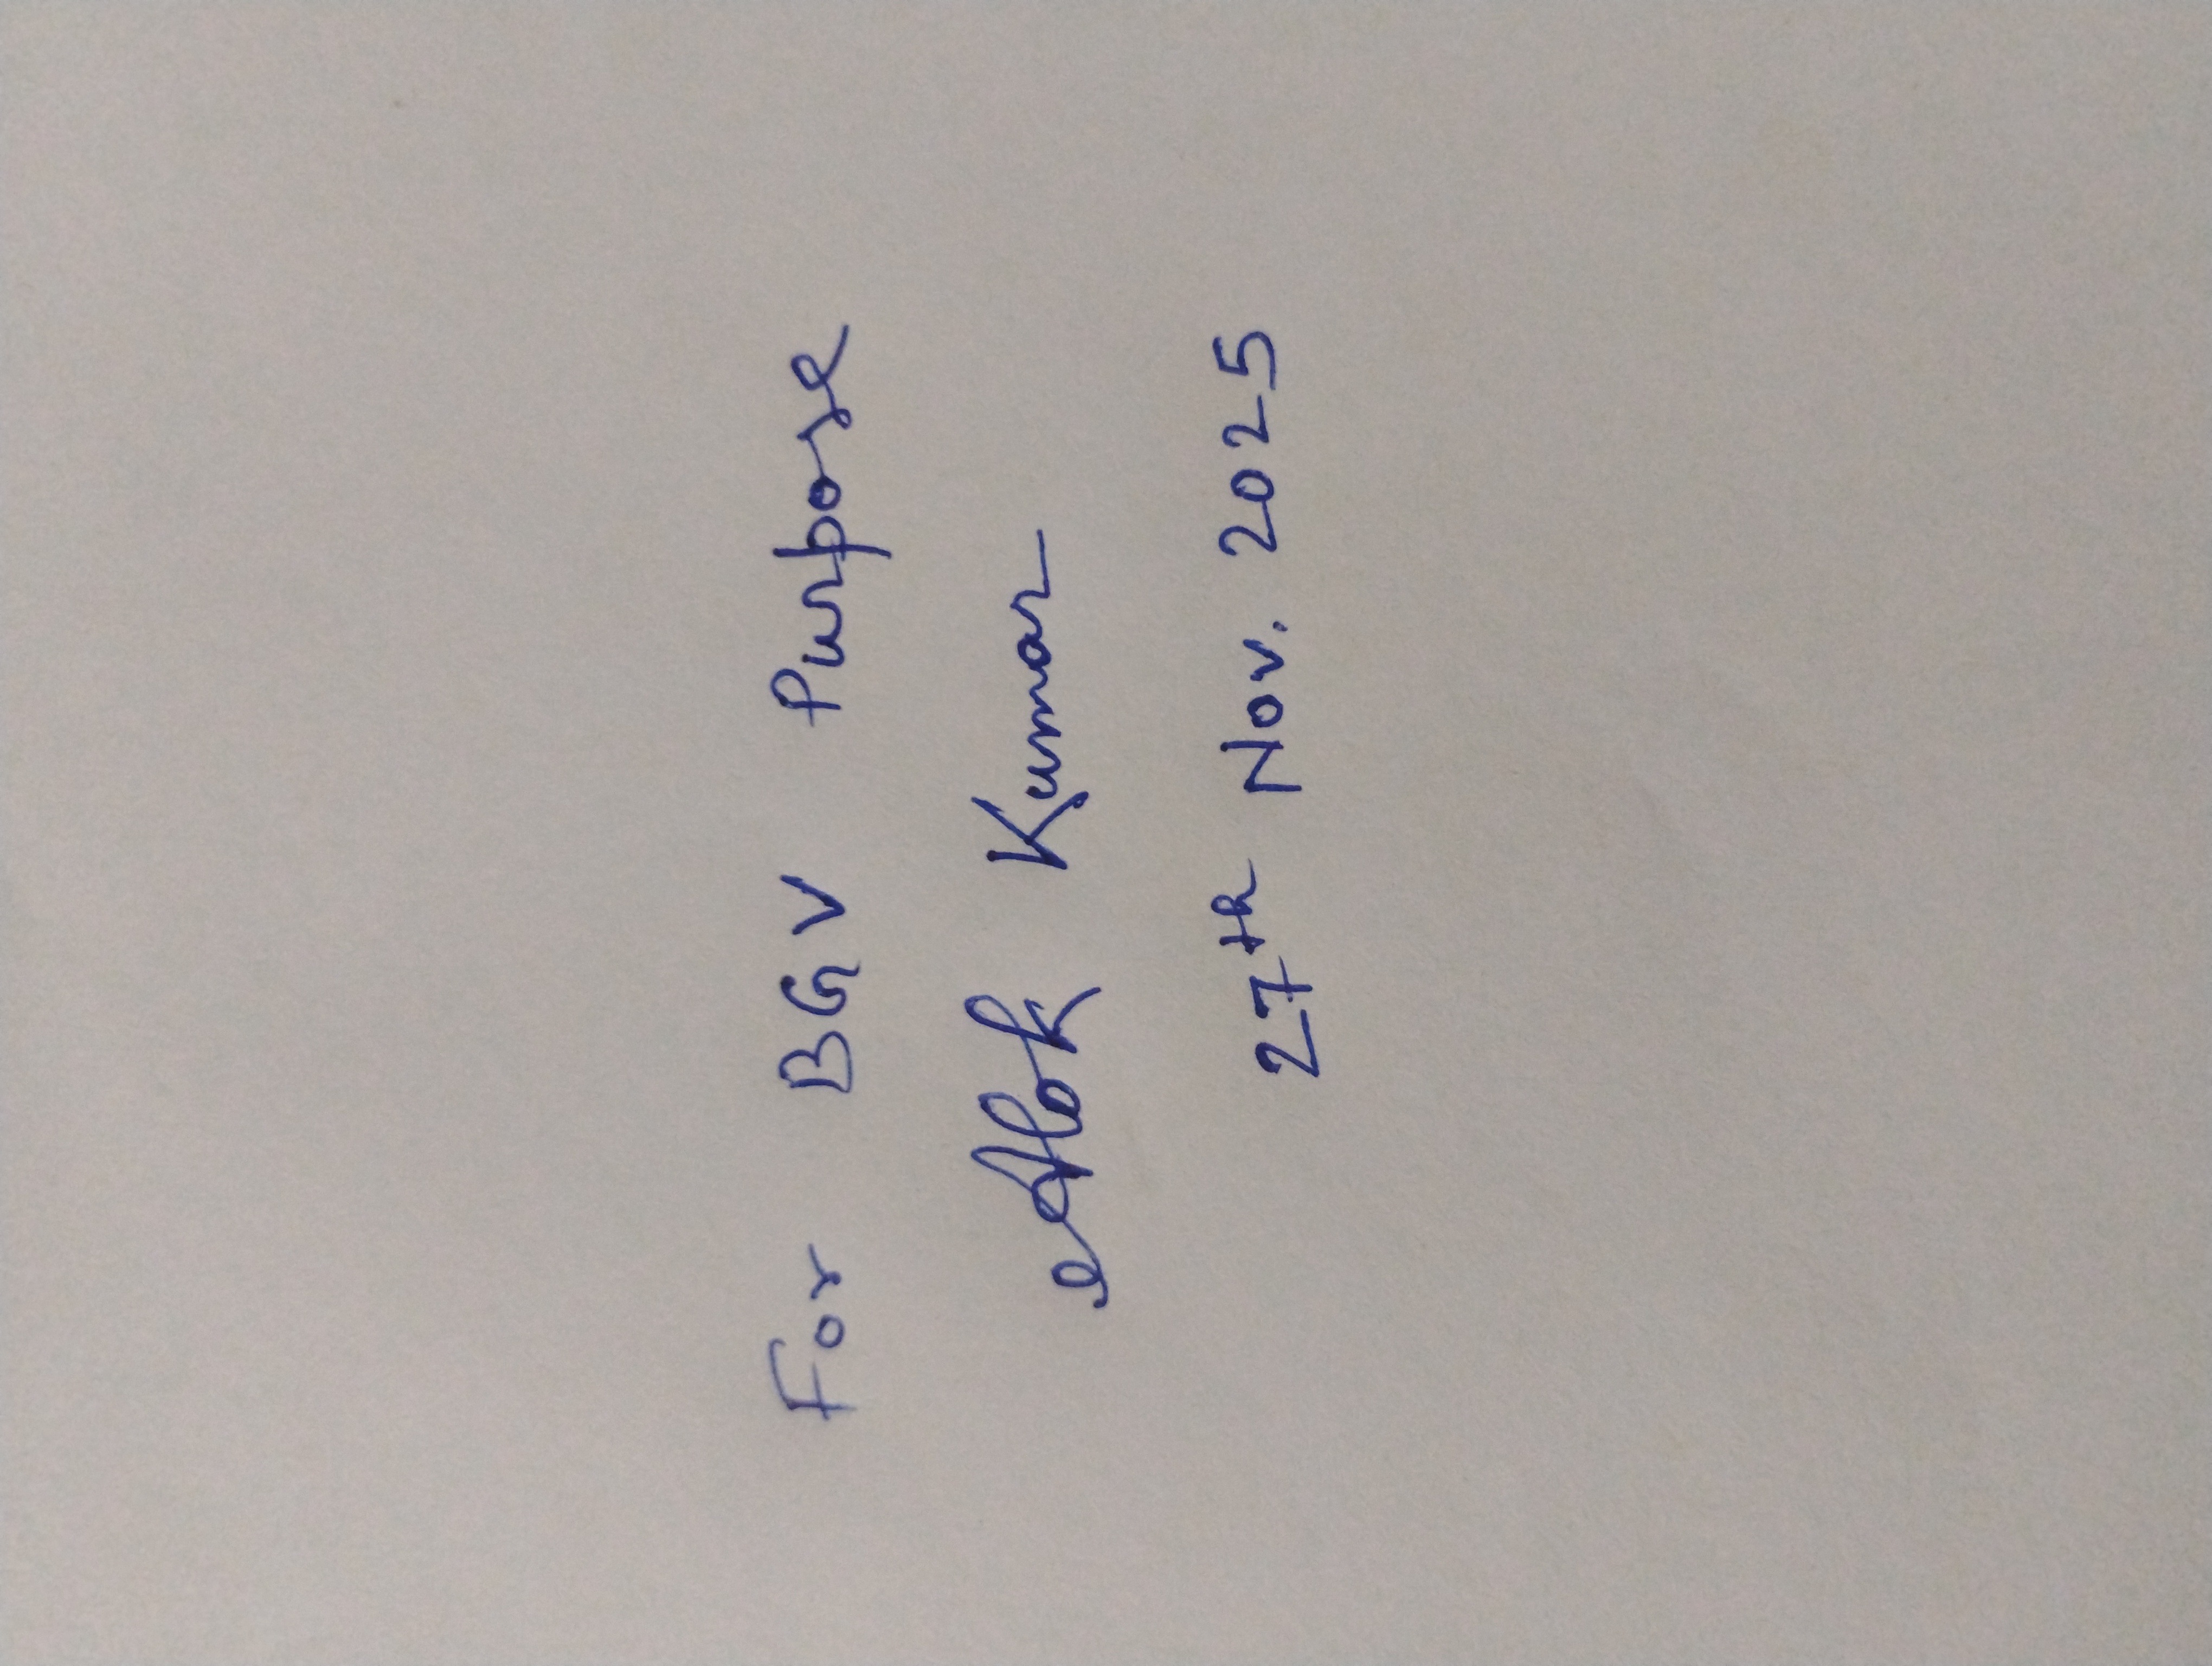 For BGV Purpose
Alok Kumar
27th Nov. 2025